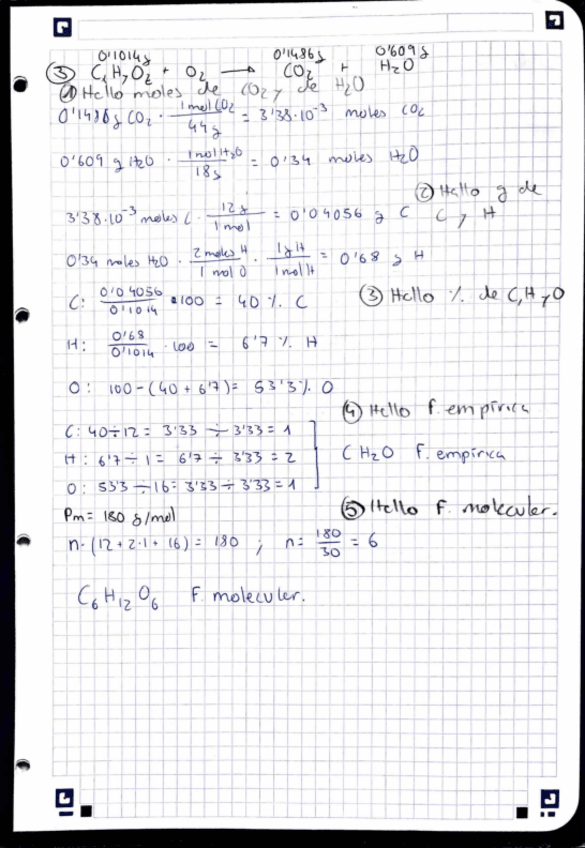 0'1014g 0'1486g 0'609g
③ CxHyOz + O2 → CO2 + H2O
① Hallo moles de CO2 y de H2O
0'1486g CO2 · 1 mol CO2 / 44 g = 3'38·10⁻³ moles CO2
0'609 g H2O · 1 mol H2O / 18g = 0'34 moles H2O
② Hallo g de C y H
3'38·10⁻³ moles C · 12g / 1 mol = 0'04056 g C
0'34 moles H2O · 2 moles H / 1 mol O · 1g H / 1 mol H = 0'68 g H
③ Hallo % de C, H y O
C: 0'04056 / 0'1014 · 100 = 40 % C
H: 0'68 / 0'1014 · 100 = 6'7 % H
O: 100 - (40 + 6'7) = 53'3% O
④ Hallo f. empírica
C: 40÷12 = 3'33 ÷ 3'33 = 1
H: 6'7 ÷ 1 = 6'7 ÷ 3'33 = 2
O: 53'3 ÷ 16 = 3'33 ÷ 3'33 = 1
CH2O f. empírica
⑤ Hallo F. molecular.
Pm = 180 g/mol
n·(12 + 2·1 + 16) = 180 ; n = 180 / 30 = 6
C6H12O6 F. molecular.